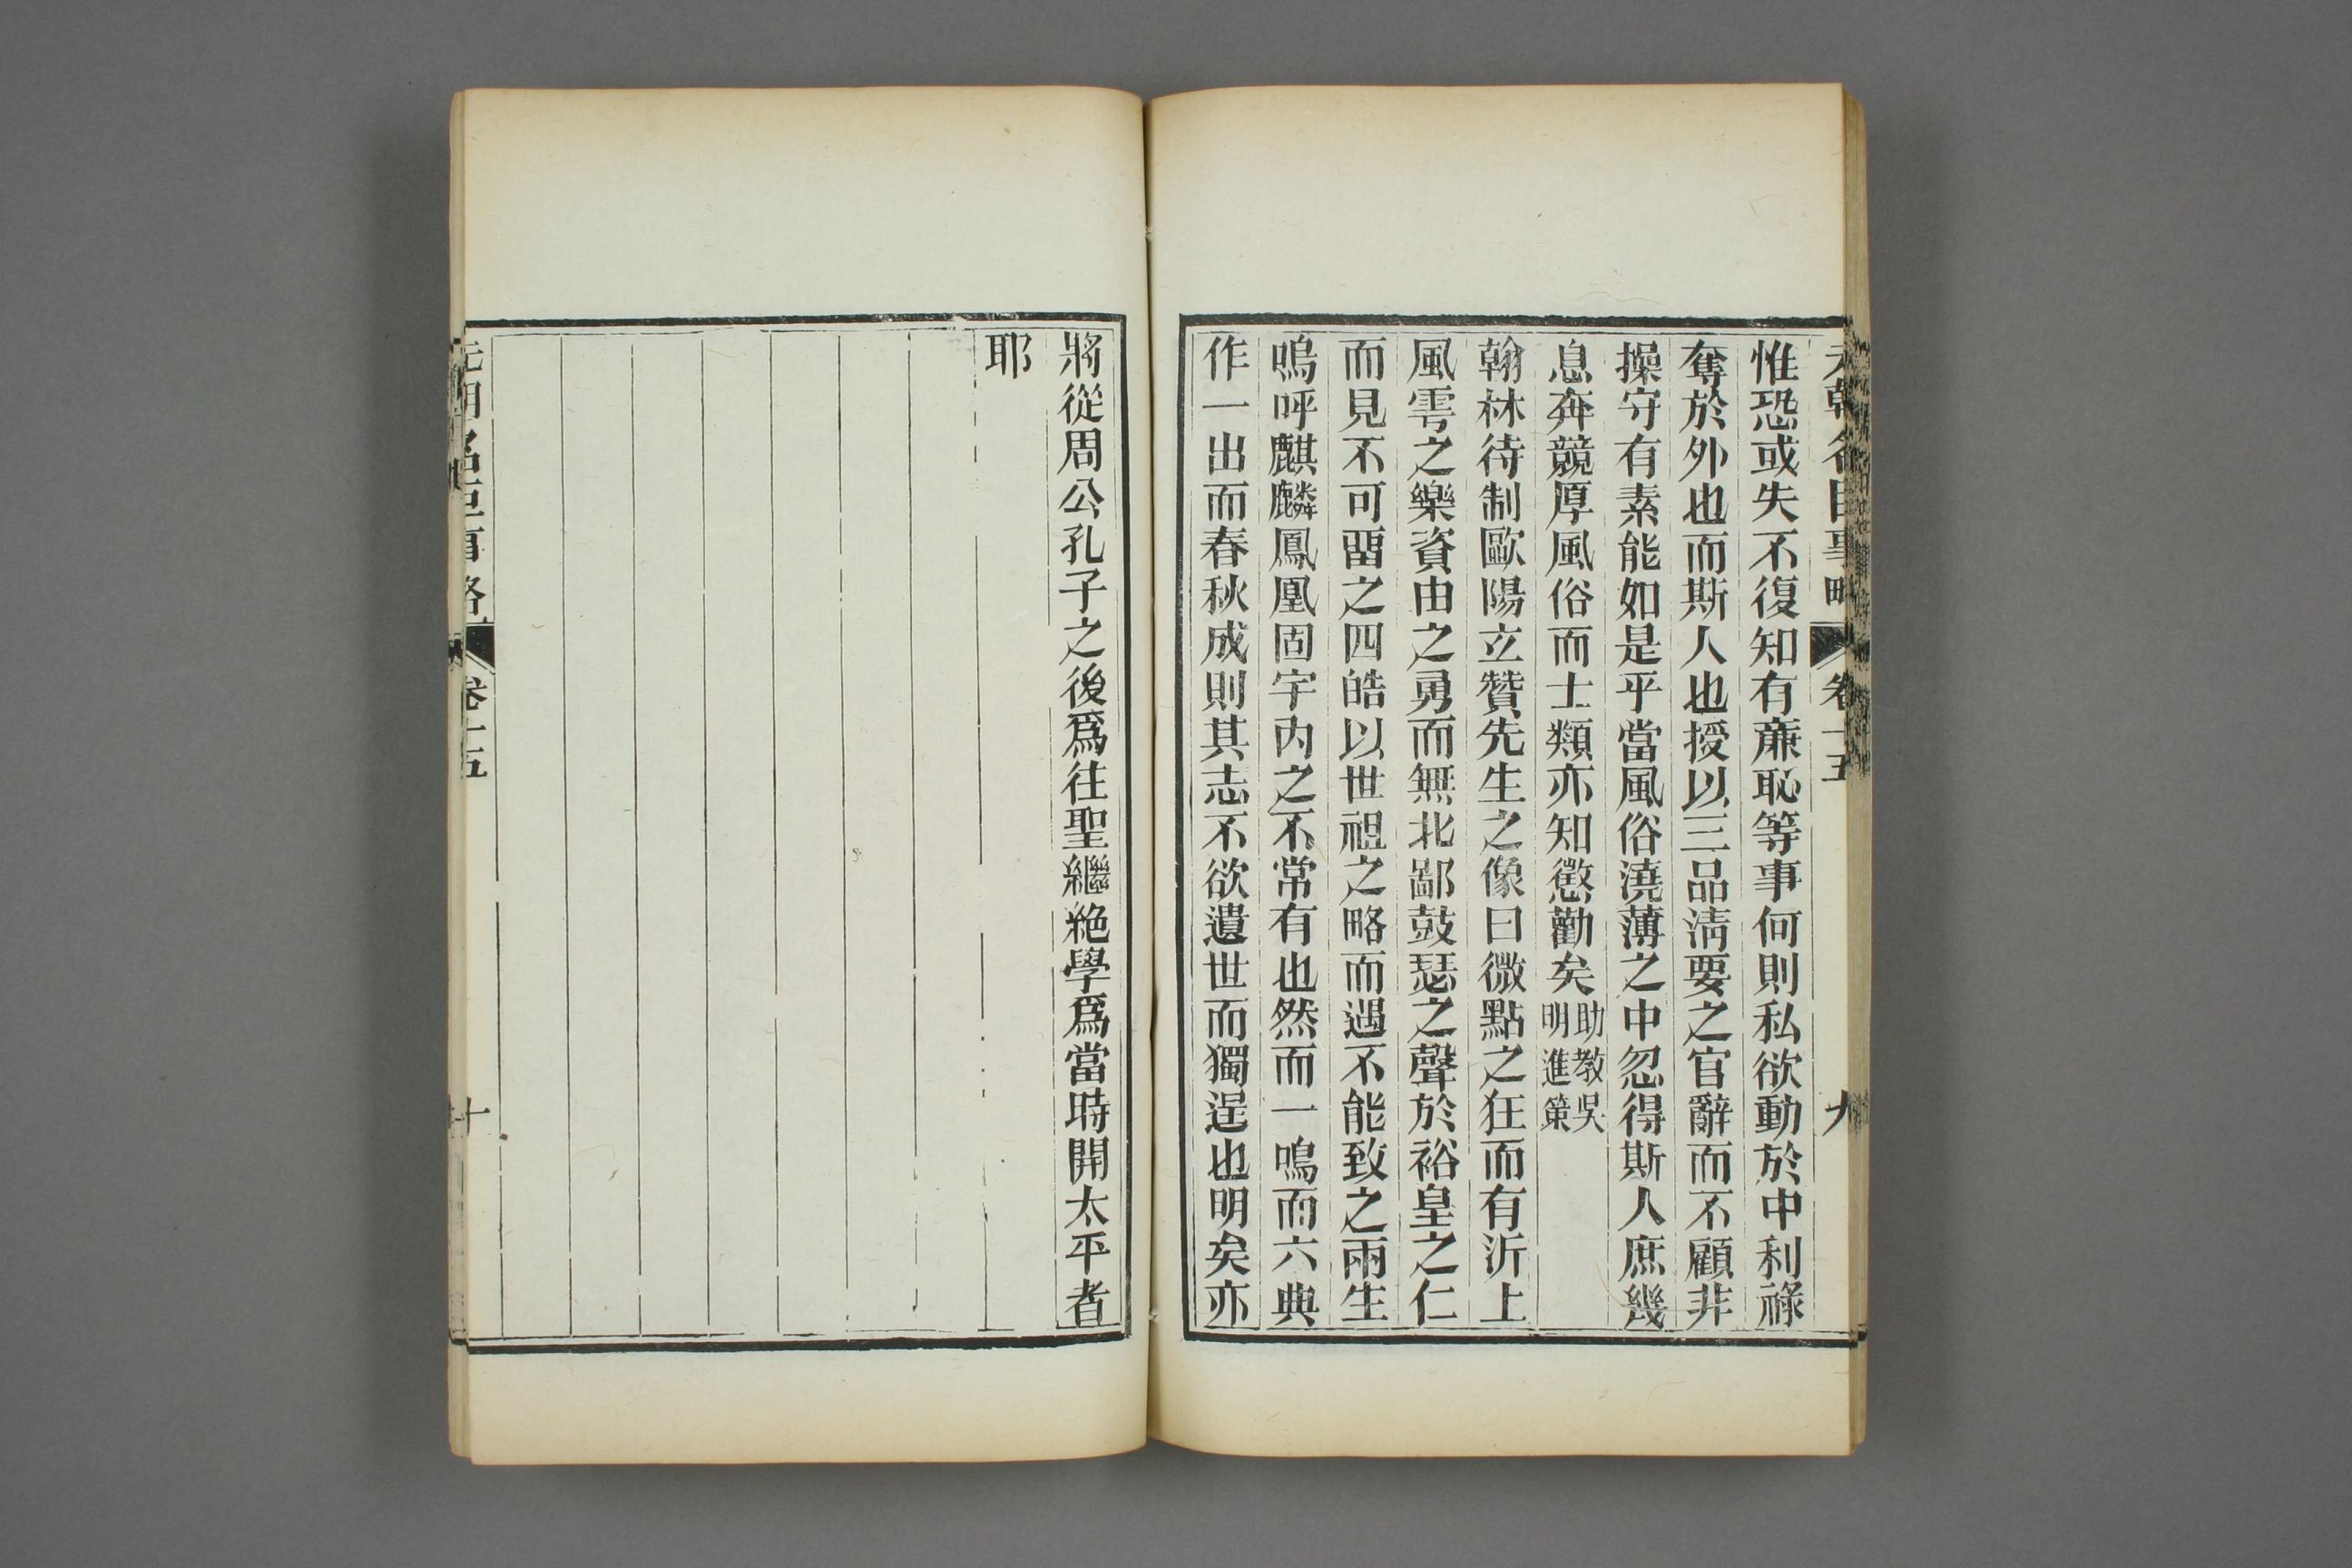 惟恐或失不復知有亷恥等事何則私欲動於中利祿
奪於外也而斯人也授以三品淸要之官辭而不顧非
操守有素能如是乎當風俗澆薄之中忽得斯人庶幾
息奔競厚風俗而士類亦知懲勸矣助教吳
明進策
翰林待制歐陽立贊先生之像曰微點之狂而有沂上
風雩之樂資由之勇而無北鄙鼓瑟之聲於裕皇之仁
而見不可畱之四皓以世祖之略而遇不能致之兩生
嗚呼麒麟鳳凰固宇内之不常有也然而一鳴而六典
作一出而春秋成則其志不欲遺世而獨逞也明矣亦
將從周公孔子之後爲往聖繼絶學爲當時開太平者
耶
卷十五
十